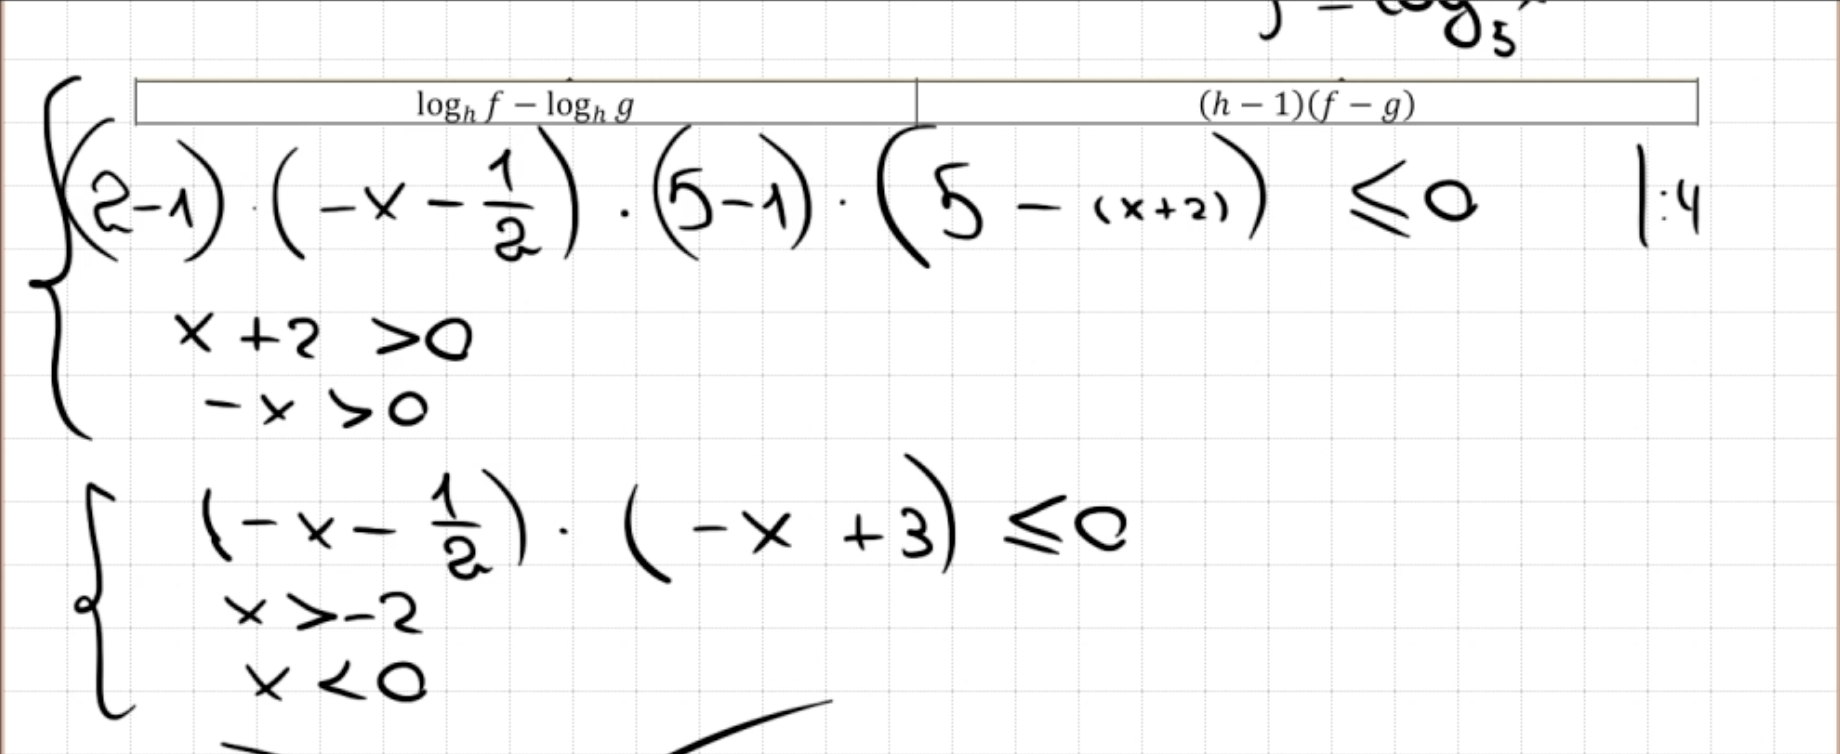 = log₅
log_h f − log_h g | (h − 1)(f − g)
(2-1) · (-x - 1/2) · (5-1) · (5 - (x+2)) ≤ 0 |:4
x + 2 > 0
-x > 0
(-x - 1/2) · (-x + 3) ≤ 0
x > -2
x < 0